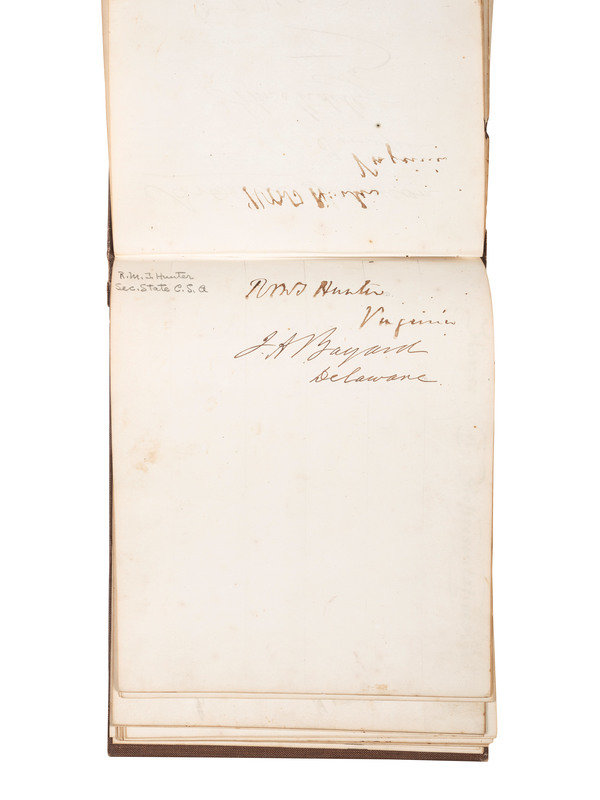 R.M.T. Hunter
Sec. State C.S.A
RMT Hunter
Virginia
J. A Bayard
Delaware.